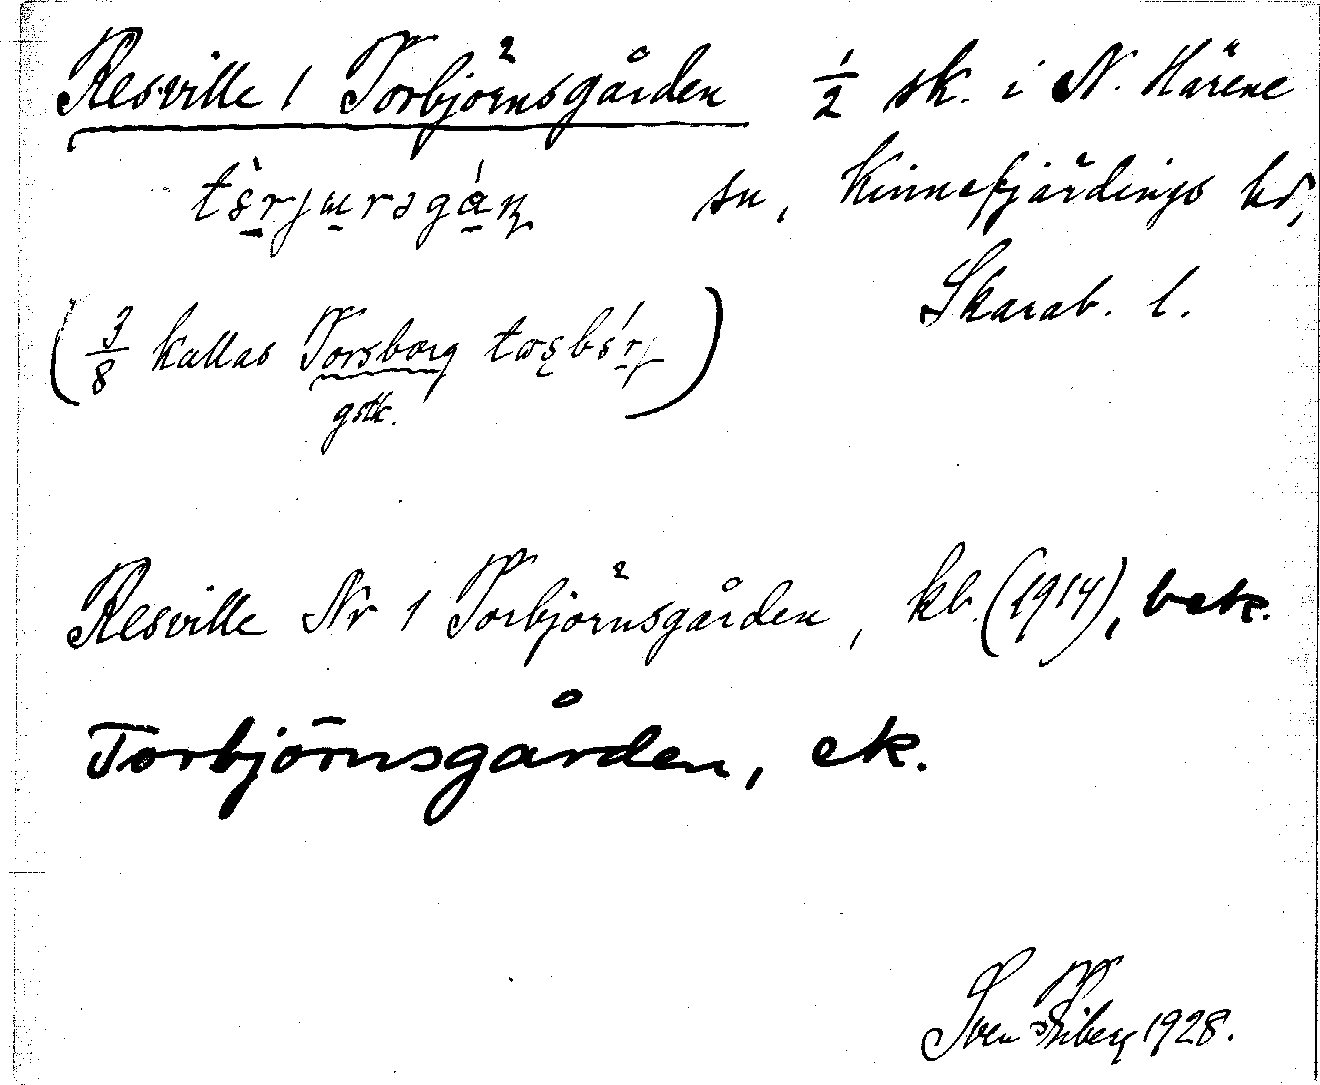 Resville 1 Torbjörnsgården ½ sk. i N. Härene
sn, Kinnefjärdings hd,
Skarab. l.
(3/8 kallas Torsborg)
gstk.
Resville Nr 1 Torbjörnsgården, kb. (1914), bek.
Torbjörnsgården, ek.
Sven 1928.